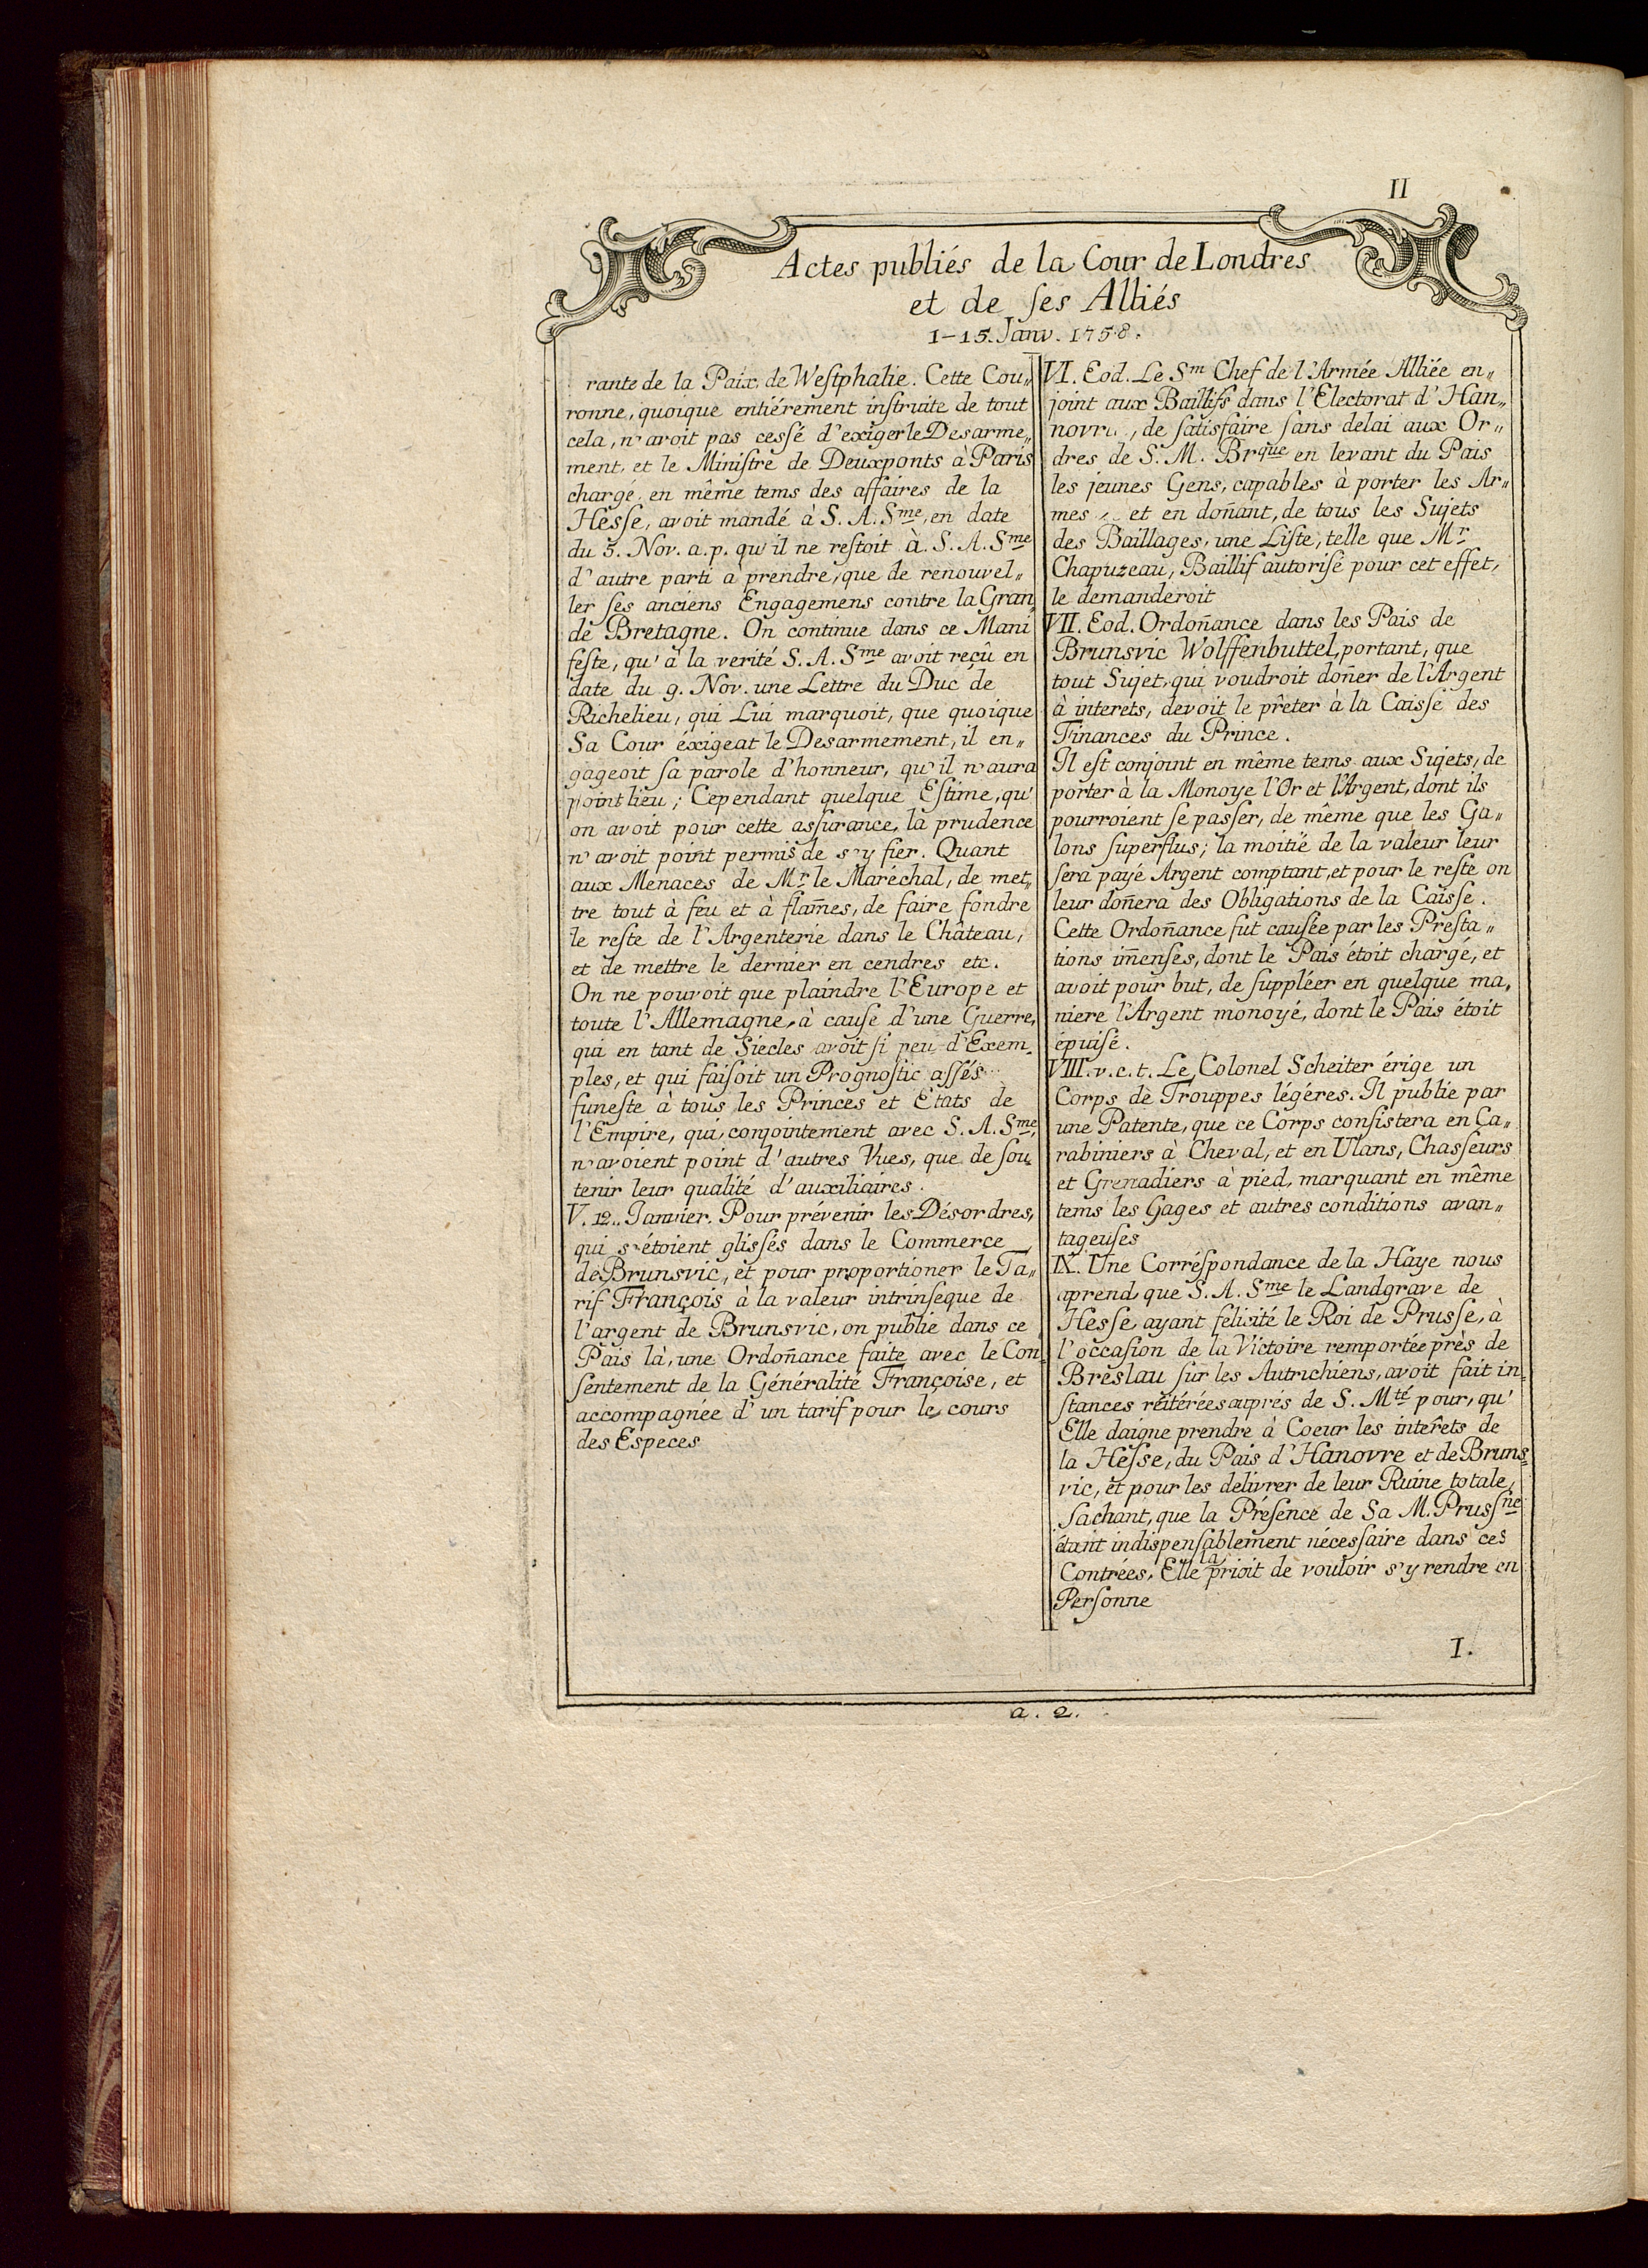 II
Actes publiés de la Cour de Londres
et de ſes Alliés
1-15. Janv. 1758.
rante de la Paix de Weſtphalie. Cette Cou„
ronne, quoique entiérement inſtruite de tout
cela, n'avoit pas ceſſé d'exiger le Desarme„
ment, et le Miniſtre de Deuxponts à Paris
chargé en même tems des affaires de la
Heſſe, avoit mandé à S. A. Sme, en date
du 5. Nov. a. p. qu'il ne reſtoit à. S. A. Sme
d'autre parti à prendre, que de renouvel„
ler ſes anciens Engagemens contre la Gran„
de Bretagne. On continue dans ce Mani
feſte, qu'à la verité S. A. Sme avoit reçû en
date du 9. Nov. une Lettre du Duc de
Richelieu, qui Lui marquoit, que quoique
Sa Cour éxigeat le Desarmement, il en„
gageoit ſa parole d'honneur, qu'il n'aura
point lieu; Cependant quelque Eſtime, qu'
on avoit pour cette asſurance, la prudence
n'avoit point permis de s'y fier. Quant
aux Menaces de Mr le Maréchal, de met„
tre tout à feu et à flam̃es, de faire fondre
le reſte de l'Argenterie dans le Château,
et de mettre le dernier en cendres etc.
On ne pouvoit que plaindre l'Europe et
toute l'Allemagne, à cauſe d'une Guerre,
qui en tant de Siecles avoit ſi peu d'Exem„
ples, et qui faiſoit un Prognoſtic aſſés
funeſte à tous les Princes et Etats de
l'Empire, qui, conjointement avec S. A. Sme,
n'avoient point d'autres Vues, que de ſou„
tenir leur qualité d'auxiliaires.
V. 12. Janvier. Pour prévenir les Désordres,
qui s'étoient gliſſés dans le Commerce
de Brunsvic, et pour proportioner le Ta„
rif François à la valeur intrinſeque de
l'argent de Brunsvic, on publie dans ce
Païs là, une Ordon̄ance faite avec le Con„
ſentement de la Généralité Françoise, et
accompagnée d'un tarif pour le cours
des Especes
VI. Eod. Le Sm Chef de l'Armée Alliée en„
joint aux Baillifs dans l'Electorat d'Han„
novre, de ſatisfaire ſans delai aux Or„
dres de S. M. Brque en levant du Païs
les jeunes Gens, capables à porter les Ar„
mes, et en don̄ant, de tous les Sujets
des Baillages, une Liſte, telle que Mr
Chapuzeau, Baillif autoriſé pour cet effet,
le demanderoit
VII. Eod. Ordon̄ance dans les Païs de
Brunsvic Wolffenbuttel, portant, que
tout Sujet, qui voudroit don̄er de l'Argent
à interets, devoit le prêter à la Caisſe des
Finances du Prince.
Il eſt conjoint en même tems aux Sujets, de
porter à la Monoye l'Or et l'Argent, dont ils
pourroient ſe paſſer, de même que les Ga„
lons ſuperflus; la moitié de la valeur leur
ſera payé Argent comptant, et pour le reſte on
leur don̄era des Obligations de la Caisſe.
Cette Ordon̄ance fut cauſée par les Preſta„
tions im̄enſes, dont le Païs étoit chargé, et
avoit pour but, de ſuppléer en quelque ma„
niere l'Argent monoyé, dont le Païs étoit
épuiſé.
VIII. v. c. t. Le Colonel Scheiter érige un
Corps de Trouppes légéres. Il publie par
une Patente, que ce Corps conſiſtera en Ca„
rabiniers à Cheval, et en Ulans, Chaſſeurs
et Grenadiers à pied, marquant en même
tems les Gages et autres conditions avan„
tageuſes
IX. Une Corréſpondance de la Haye nous
aprend que S. A. Sme le Landgrave de
Heſſe ayant felicité le Roi de Prusſe, à
l'occaſion de la Victoire remportée près de
Breslau ſur les Autrichiens, avoit fait in„
ſtances réitérées auprés de S. Mté pour, qu'
Elle daigne prendre à Coeur les interêts de
la Heſſe, du Païs d'Hanovre et de Bruns„
vic, et pour les delivrer de leur Ruine totale,
ſachant, que la Préſence de Sa M. Prusſne
étant indispenſablement néceſſaire dans ces
Contrées, Elle la prioit de vouloir s'y rendre en
Perſonne
I.
a. 2.